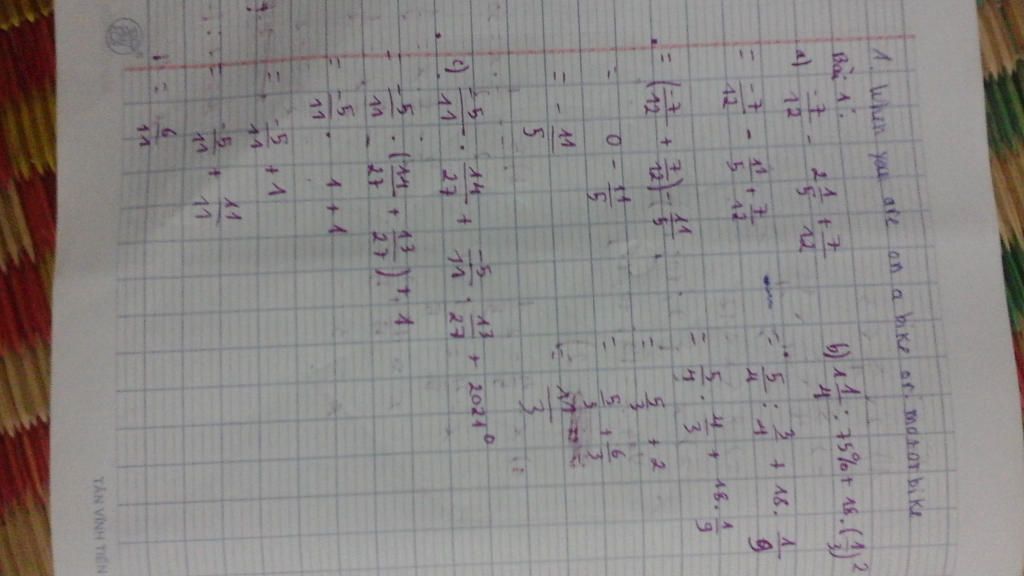 1. When you are on a bike or motorbike
Bài 1:
a) -7/12 - 2 1/5 + 7/12
= -7/12 - 11/5 + 7/12
= (7/12 + 7/12) - 11/5
= 0 - 11/5
= - 11/5
b) 1 1/4 : 75% + 18 . (1/3)^2
= 5/4 : 3/4 + 18 . 1/9
= 5/4 . 4/3 + 18 . 1/9
= 5/3 + 2
= 5/3 + 6/3
= 11/3
c) -5/11 . 14/27 + -5/11 . 13/27 + 2021^0
= -5/11 . (14/27 + 13/27) + 1
= -5/11 . 1 + 1
= -5/11 + 1
= -5/11 + 11/11
= 6/11
TÂN VĨNH TIẾN